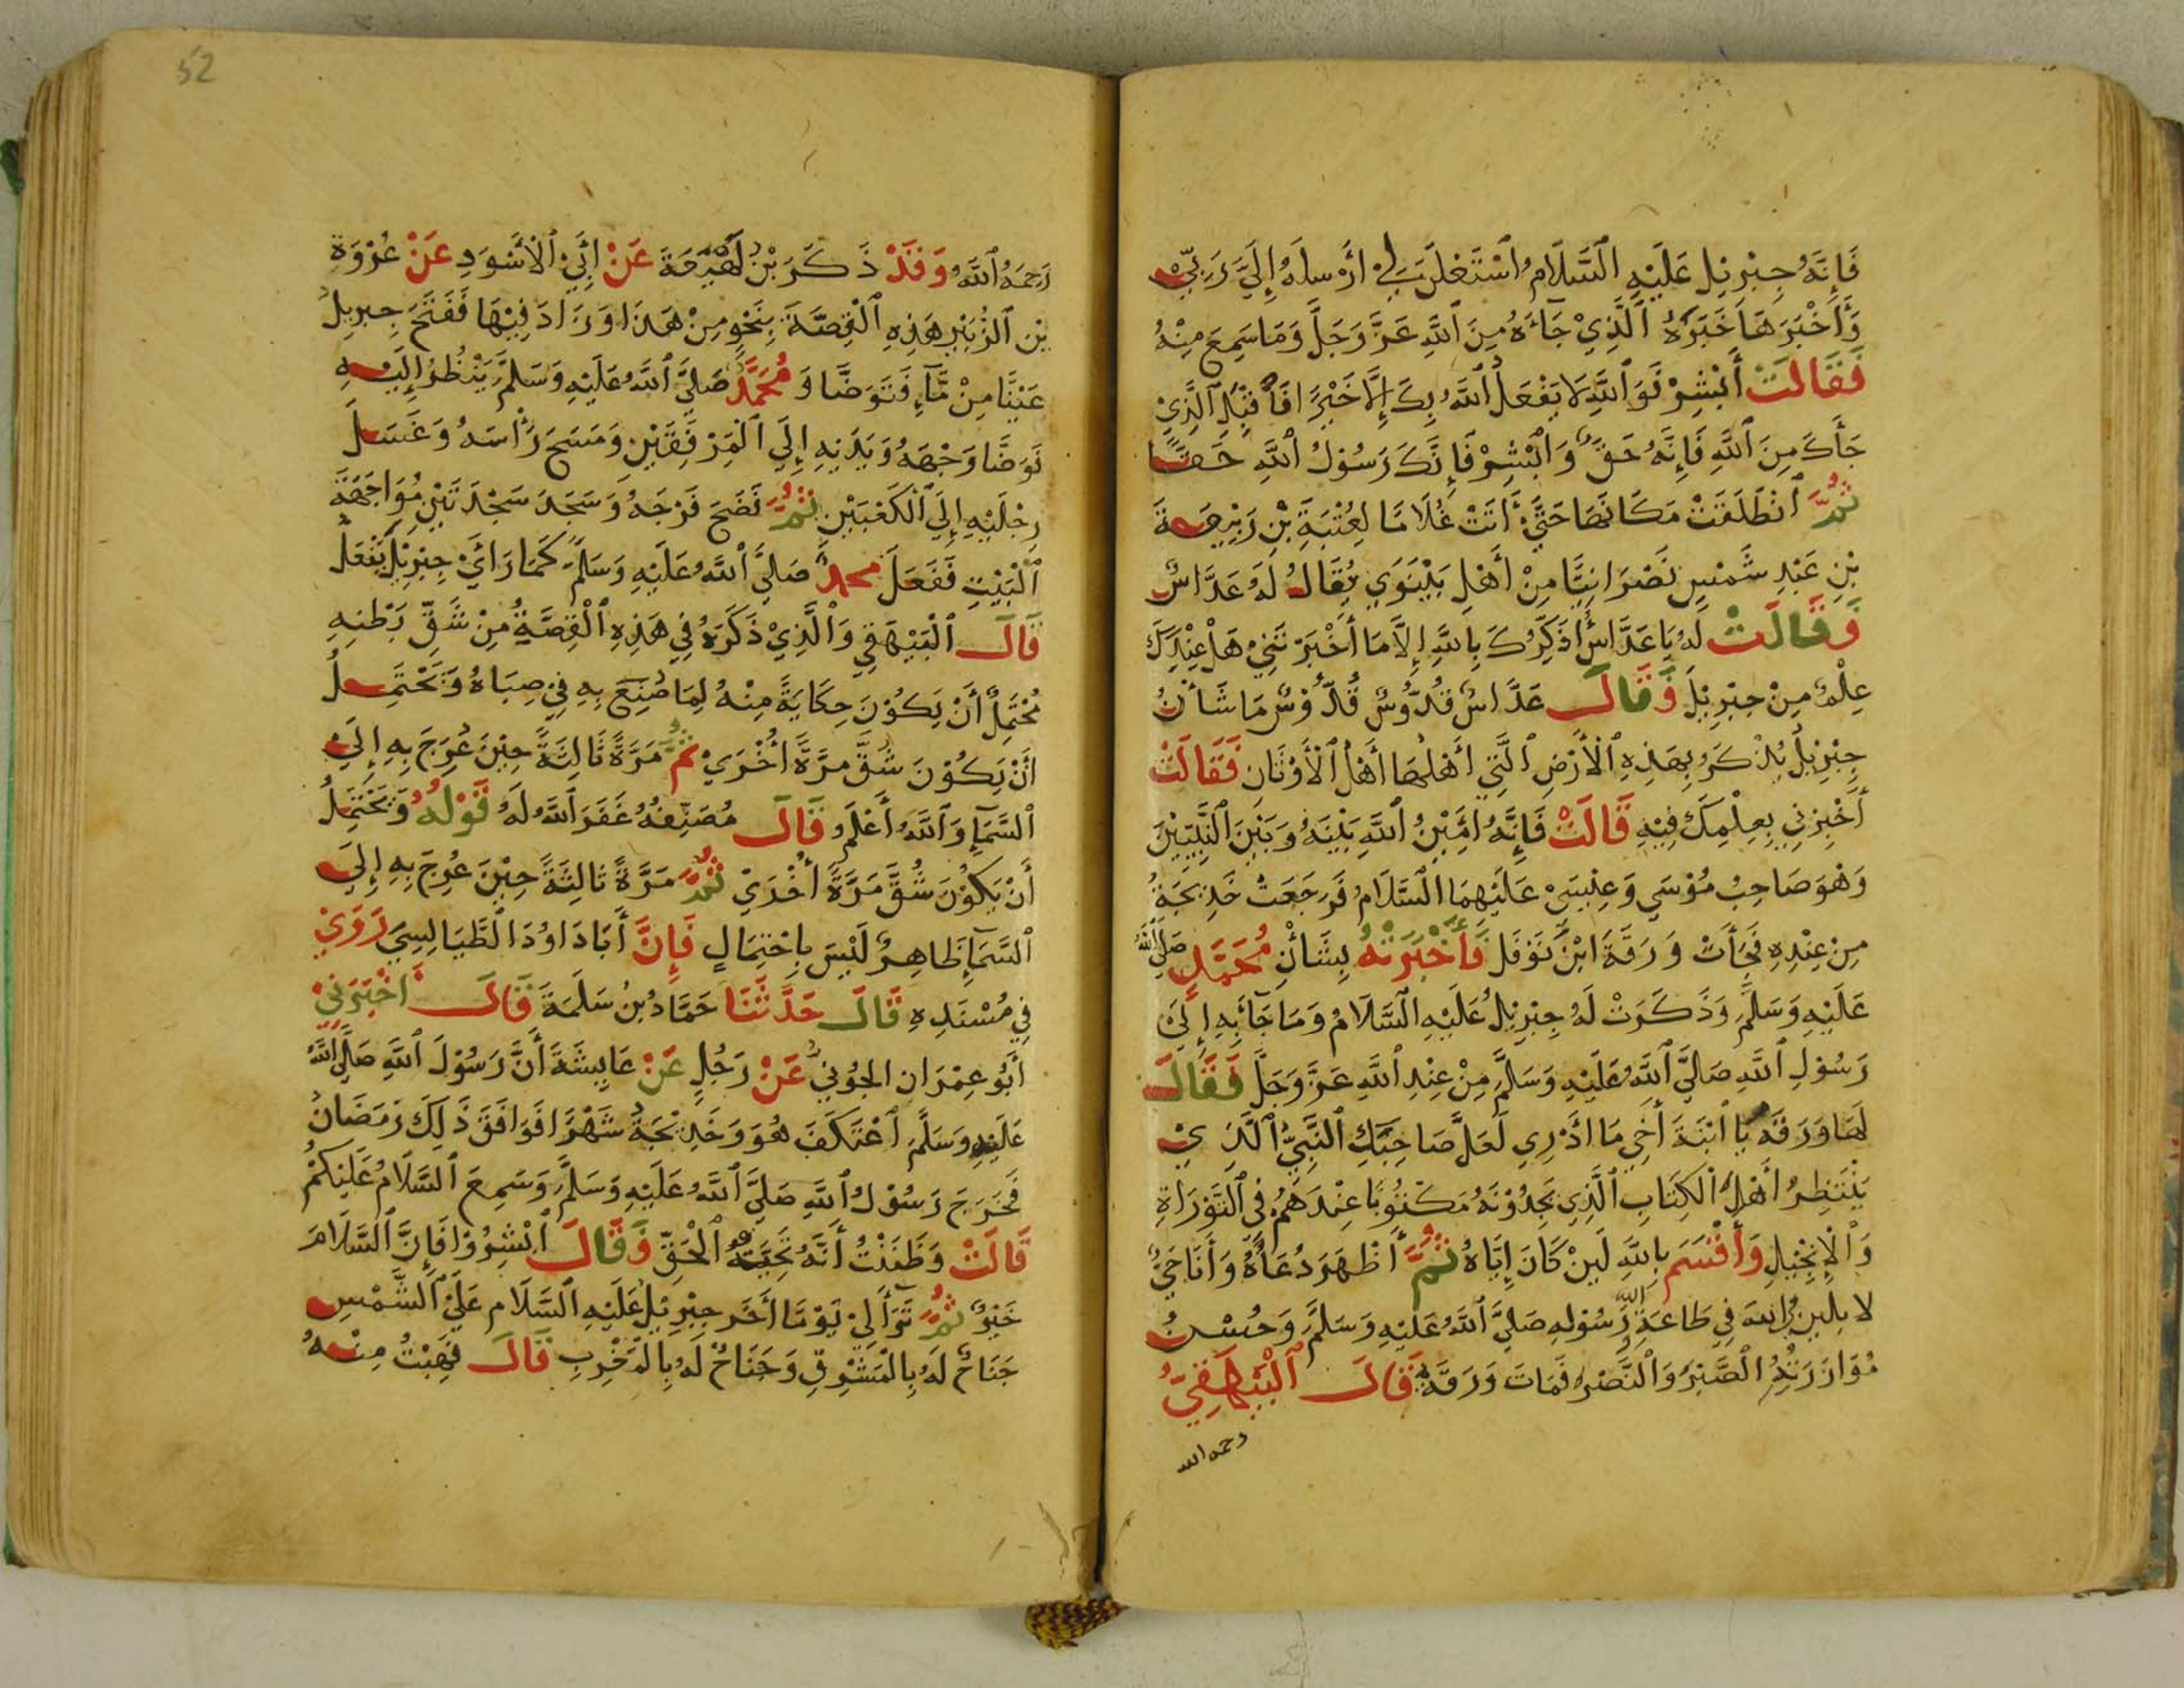 فَإِنَّهُ جِبْرِيْل عَلَيْهِ السَّلَامُ اسْتَعْلَنَ لِيْ أَرْسَلَهُ إِلَيَّ رَبِّيْ
وَأَخْبَرَهَا خَبَرَهُ الَّذِيْ جَاءَهُ مِنَ اللَّهِ عَزَّ وَجَلَّ وَمَا سَمِعَ مِنْهُ
فَقَالَتْ أَبْشِرْ فَوَاللَّهِ لَا يَفْعَلُ اللَّهُ بِكَ إِلَّا خَيْرًا فَاقْبَلِ الَّذِيْ
جَاءَكَ مِنَ اللَّهِ فَإِنَّهُ حَقٌّ وَابْشِرْ فَإِنَّكَ رَسُوْلُ اللَّهِ حَقًّا
ثُمَّ انْطَلَقَتْ مَكَانَهَا حَتَّى أَتَتْ غُلَامًا لِعُتْبَةِ بْنِ رَبِيْعَةَ
بْنِ عَبْدِ شَمْسٍ نَصْرَانِيًّا مِنْ أَهْلِ نَيْنَوَي يُقَالُ لَهُ عَدَّاسٌ
فَقَالَتْ لَهُ يَا عَدَّاسُ أُذَكِّرُكَ بِاللَّهِ إِلَّا مَا أَخْبَرْتَنِيْ هَلْ عِنْدَكَ
عِلْمٌ مِنْ جِبْرِيْلَ فَقَالَ عَدَّاسٌ قُدُّوْسٌ قُدُّوْسٌ مَا شَأْنُ
جِبْرِيْلُ يُذْكَرُ بِهَذِهِ الْأَرْضِ الَّتِي أَهْلُهَا أَهْلُ الْأَوْثَانِ فَقَالَتْ
أَخْبِرْنِي بِعِلْمِكَ فِيْهِ قَالَتْ فَإِنَّهُ أَمِيْنُ اللَّهِ بَيْنَهُ وَبَيْنَ النَّبِيِّيْنَ
وَهُوَ صَاحِبُ مُوْسَي وَعِيْسَيْ عَلَيْهِمَا السَّلَامُ فَرَجَعَتْ خَدِيْجَةُ
مِنْ عِنْدِهِ فَجَاءَتْ وَرَقَةَ ابْنَ نَوْفَل فَأَخْبَرَتْهُ بِشَأْنِ مُحَمَّدٍ صَلَّي اللَّهُ
عَلَيْهِ وَسَلَّمَ وَذَكَرَتْ لَهُ جِبْرِيْلُ عَلَيْهِ السَّلَامُ وَمَا جَاءَ بِهِ إِلَيْ
رَسُوْلِ اللَّهِ صَلَّيَ اللَّهُ عَلَيْهِ وَسَلَّمَ مِنْ عِنْدِ اللَّهِ عَزَّ وَجَلَّ فَقَالَ
لَهَا وَرَقَه يَا ابْنَةَ أَخِي مَا أَدْرِي لَعَلَّ صَاحِبَكِ النَّبِيُّ الَّذِيْ
يَنْتَظِرُ أَهْلُ الْكِتَابِ الَّذِي يَجِدُوْنَهُ مَكْتُوبًا عِنْدَهُمْ فِي التَّوْرَاةِ
وَالْإِنْجِيْلِ وَأُقْسِمُ بِاللَّهِ لَئِنْ كَانَ إِيَّاهُ ثُمَّ أَظْهَرَ دُعَاءَهُ وَأَنَا حَيٌّ
لَابْلِيَنَّ اللهَ فِي طَاعَةِ رَسُوْلِهِ صَلَّيَ اللَّهُ عَلَيْهِ وَسَلَّمَ وَحُسْنُ
مُوَازَرَتُهُ الصَّبْرُ وَالنَّصْرُ فَمَاتَ وَرَقَة قَالَ الْبَيْهَقِيُّ
رحمه الله
52
رَحِمَهُ اللَّهُ وَقَدْ ذَكَرَ بْنُ لَهِيْعَةَ عَنْ أَبِيْ الْأَسْوَدِ عَنْ عُرْوَةِ
بْنِ الزُّبَيْرِ هَذِهِ الْقِصَّةَ بِنَحْوٍ مِنْ هَذَا وَزَادَ فِيْهَا فَفَتَحَ جِبرِيلُ
عَيْنًا مِنْ مَّاءٍ فَتَوَضَّا وَمُحَمَّدٌ صَلَّيَ اللَّهُ عَلَيْهِ وَسَلَّمَ يَنْظُرُ إِلَيْهِ
تَوَضَّا وَجْهَهُ وَيَدَيْهِ إِلَي الْمِرْفَقَيْنِ وَمَسَحَ رَأْسَهُ وَغَسَلَ
رِجْلَيْهِ إِلَي الْكَعْبَيْنِ ثُمَّ نَضَحَ فَرْجَهُ وَسَجَدَ سَجْدَتَيْنِ مُوَاجَهَةَ
الْبَيْتِ فَفَعَلَ محمدٌ صَلَّيَ اللَّهُ عَلَيْهِ وَسَلَّمَ كَمَا رَايَ جِبْرِيْلَ يَفْعَلُ
قَالَ الْبَيْهَقِي وَالَّذِيْ ذَكَرَهُ فِي هَذِهِ الْقِصَّةُ مِنْ شَقِّ بَطْنِهِ
مُحْتَمِلٌ أَنْ يَكُوْنَ حِكَايَةً مِنْهُ لِمَا صُنِعَ بِهِ فِيْ صِبَاهُ وَيَحْتَمِلُ
أَنْ يَكُوْنَ شُقَّ مَرَّةً أُخْرَيْ ثُمَّ مَرَّةً ثَالِثَةً حِيْنَ عُرِجَ بِهِ إِلَيْ
السَّمَاءِ وَاللَّهُ أَعْلَمُ قَالَ مُصَنِّفُهُ غَفَرَ اللهُ لَهُ قَوْلُهُ وَيَحْتَمِلُ
أَنْ يَكُوْنَ شُقَّ مَرَّةً أُخْرَيْ ثُمَّ مَرَّةً ثَالِثَةً حِيْنَ عُرِجَ بِهِ إِلَي
السَّمَاءِ ظَاهِرٌ لَيْسَ بِاحْتِمَالٍ فَإِنَّ أَبَا دَاوُدَ الطَّيَالِسِيَ رَوَيْ
فِي مُسْنَدِهِ قَالَ حَدَّثَنَا حَمَّادُ بنُ سَلَمَةَ قَالَ أَخْبَرَنِيْ
أَبُو عِمْرَان الجُوْنِيُّ عَنْ رَجُلٍ عَنْ عَايِشَةَ أَنَّ رَسُوْلَ اللَّهِ صَلَّي اللَّهُ
عَلَيْهِ وَسَلَّمَ اعْتَكَفَ هُوَ وَخَدِيْجَةُ شَهْرًا فَوَافَقَ ذَلِكَ رَمَضَانُ
فَخَرَجَ رَسُوْلُ اللَّهِ صَلَّيَ اللَّهُ عَلَيْهِ وَسَلَّمَ وَسَمِعَ السَّلَامُ عَلَيْكُمْ
قَالَتْ وَظَنَنْتُ أَنَّهُ الْحَقِّ وَقَالَ ابْشِرُوْا فَإِنَّ السَّلَامَ
خَيْرٌ ثُمَّ يَوْمًا أَخَر جِبْرِيْلُ عَلَيْهِ السَّلَام عَلَيْ الشَّمْسِ
جَنَاحٌ لَهُ بِالْمَشْرِقِ وَجَنَاحٌ لَهُ بِالْمَغْرِبِ قَالَ فَهِبْتُ مِنْهُ